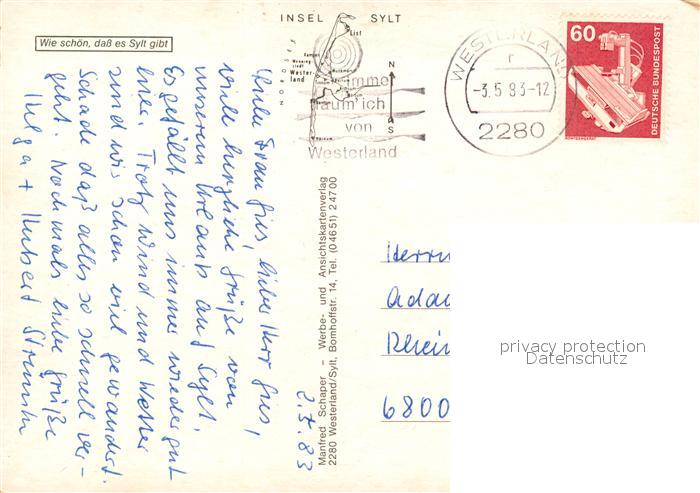 INSEL SYLT
Wie schön, daß es Sylt gibt
List
Kampen
Wester-
land
N
S
träum' ich
von
Westerland
WESTERLAND
r
-3.5.83-12
2280
60
DEUTSCHE BUNDESPOST
RÖNTGENGERÄT
2.5.83
Liebe Frau Gies, lieber Herr Gies,
viele herzliche Grüße von
unserem Urlaub auf Sylt.
Es gefällt uns immer wieder gut
hier. Trotz Wind und Wetter
sind wir schon viel gewandert.
Schade daß alles so schnell ver-
geht. Nochmals liebe Grüße
Helga + Hubert
Manfred Schaper - Werbe- und Ansichtskartenverlag
2280 Westerland/Sylt, Bomhoffstr. 14, Tel. (04651) 24700
Herrn
Adam
Rhein
6800
privacy protection
Datenschutz